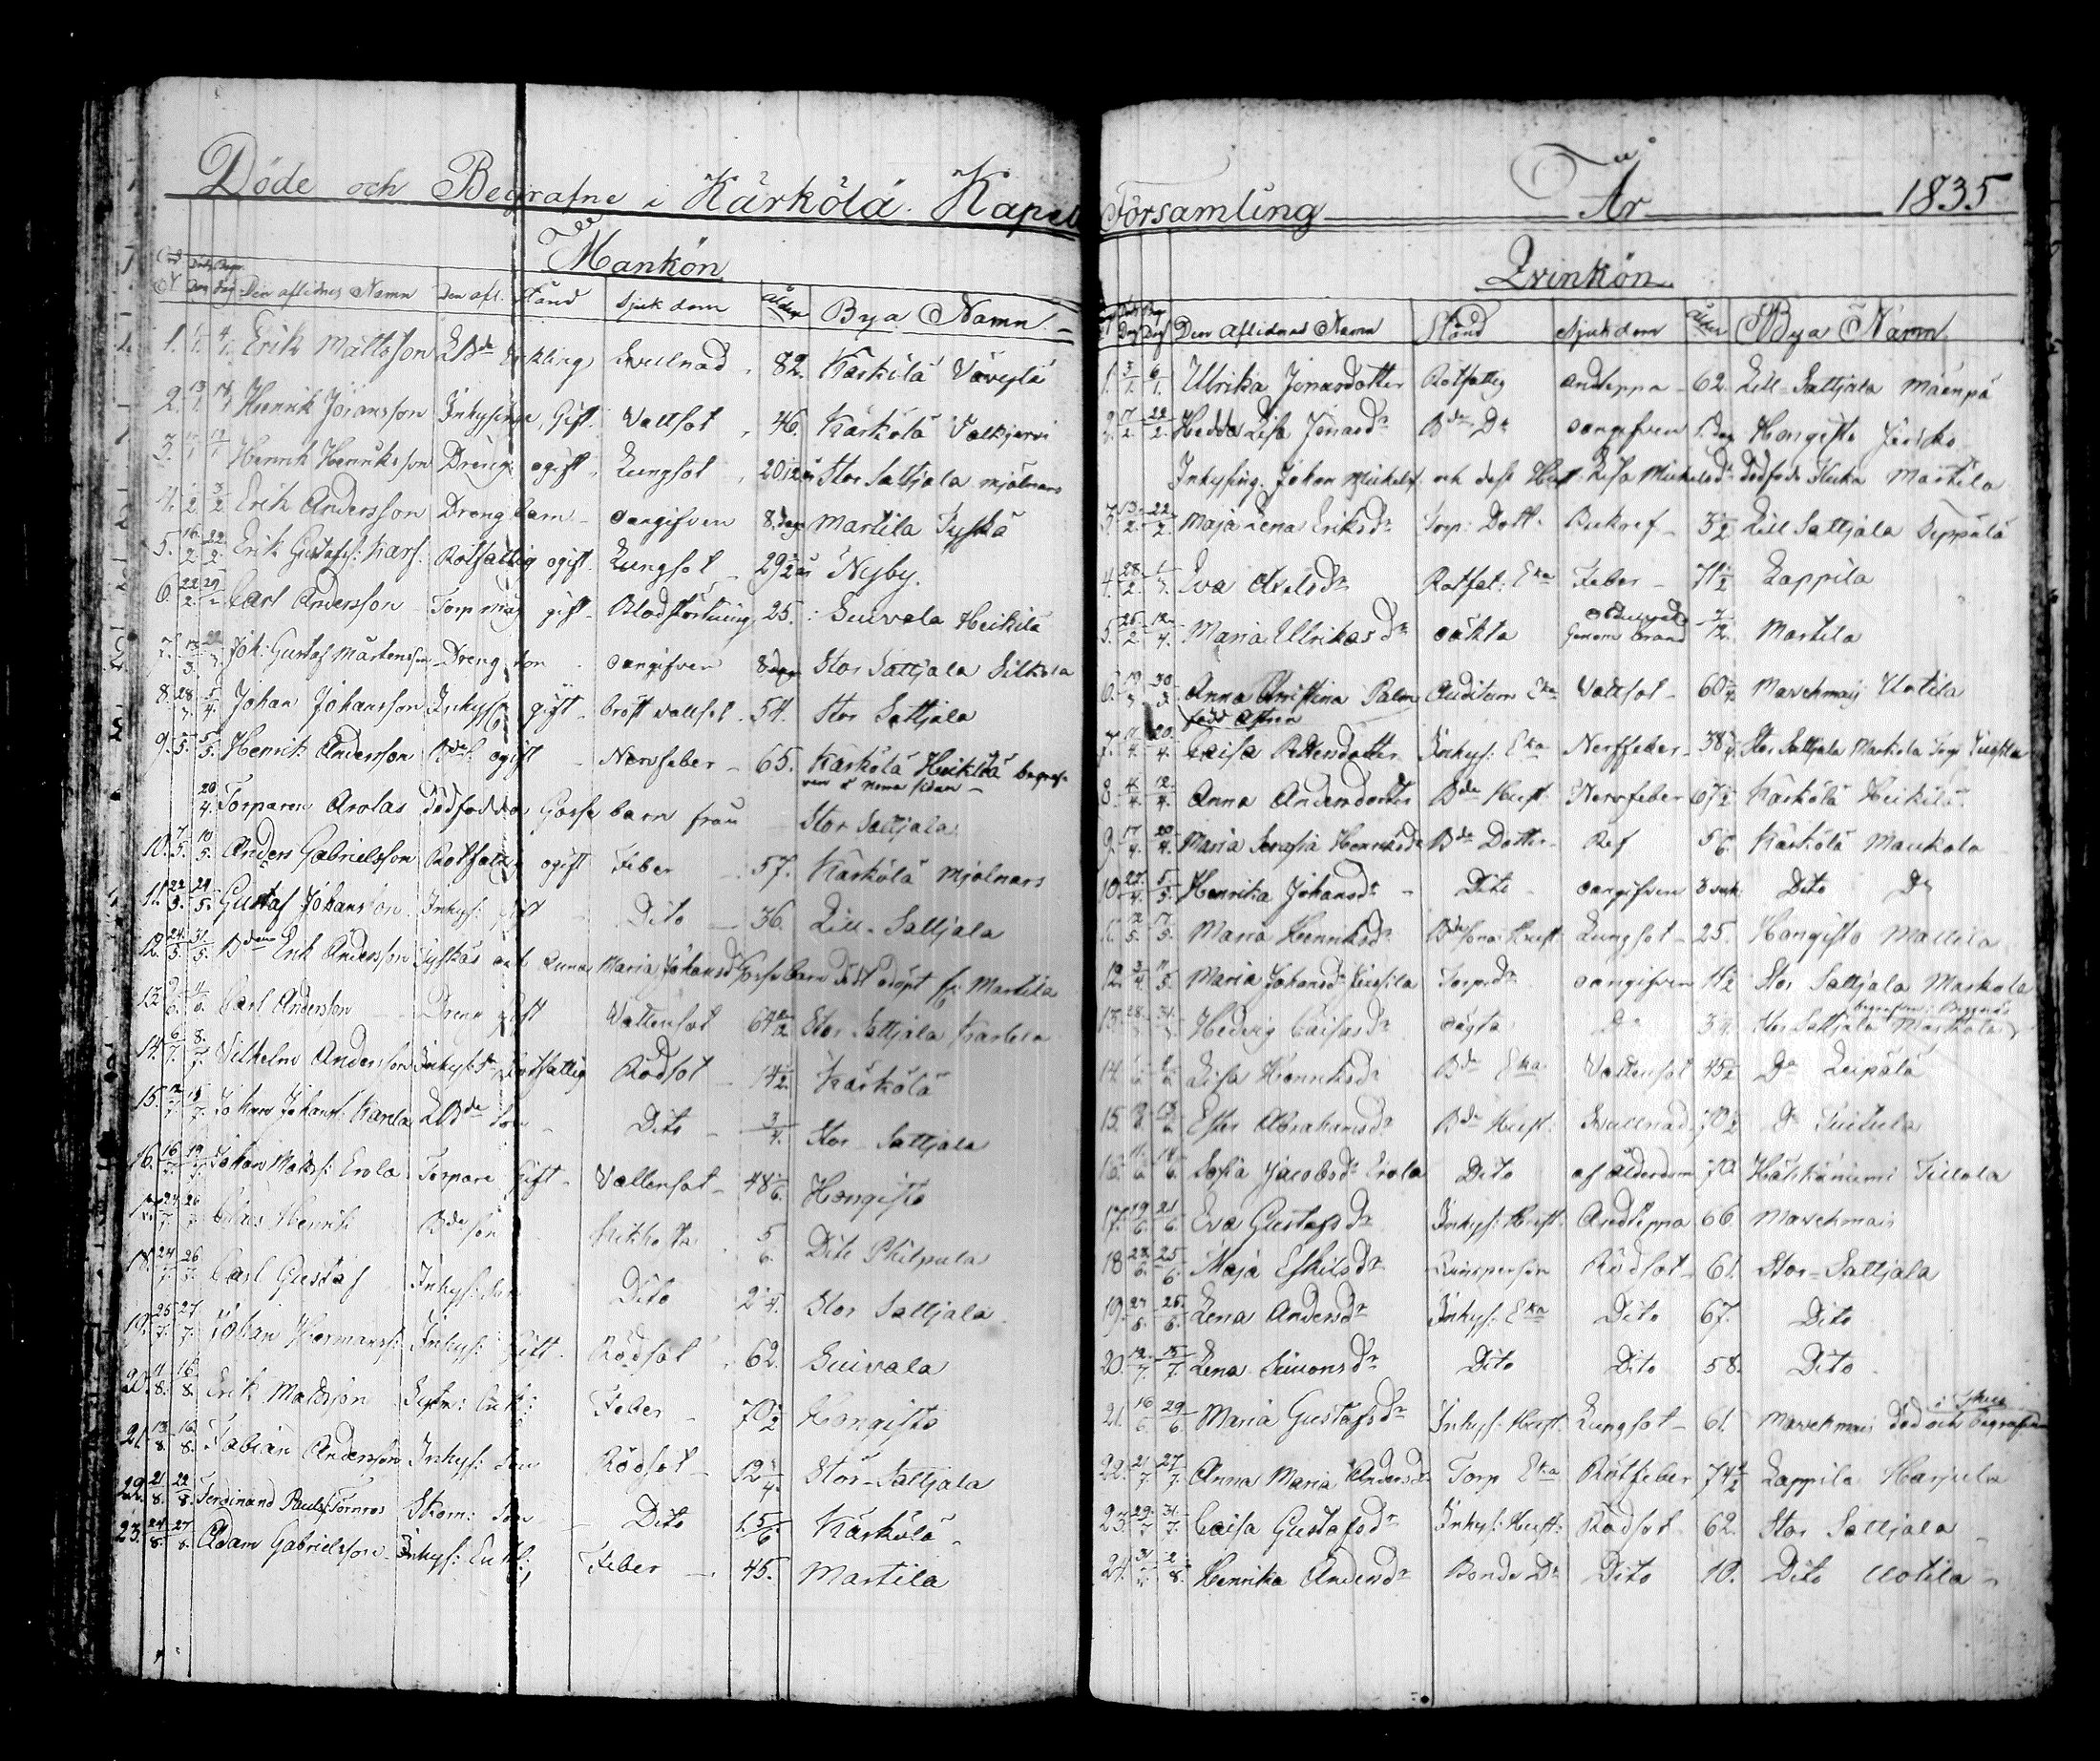 Döde och Begrafne i Kärkölä Kapell Församling År 1835
Mankön
N Den aflidnes Namn Den afl. Stånd Sjukdom Ålder Bya Namn
1. Erik Mattsson Enkling Svulnad 82. Kärkölä
2. Henrik Johansson Inhysing, Gift. Vattsot 46. Kärkölä Valkjervi
3. Henrik Henriksson Dreng ogift Lungsot 20 1/2 år Stor Sattjala mjölnars
4. 1/2 3/2 Erik Andersson Dreng barn oangifven 8 dag Martila Tyskä
5. 16/2 22/2 Erik Gustafs: Karf. Rotfattig ogift. Lungsot 29 1/2 år Nyby.
6. 22/2 Carl Andersson Torp måg gift Blodstörtning 25. Suivala Heikilä
7. Joh: Gustaf Mårtensson Dreng son oangifven 8 dagar Stor Sattjala Silkola
8. Johan Johansson Inhyss gift bröst vattsot 54. Stor Sattjala
9. Henrik Andersson ogift Nervfeber 65. Kärkölä Heikilä begrafven
20/4. Torparen Arolas dödfödda Gosse barn från Stor Sattjala
10. 7/5. 10/5. Anders Gabrielsson Rotfattig ogift Feber 57. Kärkölä mjölnars
11. Gustaf Johansson Inhys: gift Dito 36. Lill-Sattjala
12. 24/5 31/5. Erik Andersson Tyskäs Maria Johansd. Gosse barn dödt odöpt fr: Martila
13. Carl Andersson Dreng gift Vattensot 64 Stor Sattjala Kartela
14. 6/7. 8/7. Vilhelm Andersson Inhys: Rotfattig Rödsot 14 1/2. Kärkölä
15. Johan Johans: Karela Son Dito 3/4. Stor Sattjala
16. 16/7. 19/7. Johan Matts: Erola Torpare Gift Vattensot 48 1/6. Hongisto
17. 24/7. 26/7. Henrik Bde son 5/6. Dito Philpula
18. 24/7. 26/7. Carl Gustaf Inhys: Son Dito 2 1/4. Stor Sattjala
19. 25/7. 27/7. Johan Hermans: Inhys: Gift. Rödsot 62. Suivala
20. 11/8. 16/8. Erik Mattsson Feber 70 1/2 Hongisto
21. 13/8. 16/8. Fabian Andersson Inhys: Son Rödsot 12 1/4. Stor-Sattjala
22. 21/8. 22/8. Ferdinand Pauls: Törnroos Skom: Son Dito 1. 5/6. Kärkölä
23. 24/8. 27/8. Adam Gabrielsson Inhys: Enkl: Feber 45. Martila
Qvinkön
Den Aflidnes Namn Stånd Sjukdom Ålder Bya Namn
1. 3/1. 6/1. Ulrika Jonasdotter Rotfattig andteppa 62. Lill-Sattjala Mäenpä
2. 17/2. 22/2. Hedda Lisa Jonasdr Bde Dr oangifven 1. dag Hongisto
Inhysing. Johan Mickels: och dess Hust Lisa Mickelsdr dödföda flicka Martila
3. 22/2. Maja Lena Eriksdr Torp: Dott: Bukref 3 1/2 Lill Sattjala Seppälä
4. 28/2. Eva Axelsdr Rotfat: Eka Feber 71 1/2 Lappila
5. Maria Ulrikasdr oäkta Genom brand Martila
6. Anna Christina Palm Auditeurs Eka Vattsot 60 Marckmais Uotila
född
7. 20/4. Caisa Pettersdotter Inhys: Eka Nerffeber 38 Stor Sattjala Markola Torp
8. 4/4. 12/4. Anna Andersdotter Bde Hust. Nervfeber 67 1/2 Kärkölä Heikilä
9. 17/4. 20/4. Maria Serafia Henriksdr Bde Dotter Ref 5/6. Kärkölä Maukola
10. 27/4. 5/5. Henrika Johansdr Dito oangifven 3 vek Dito Do
11. 12/5. 17/5. Maria Henriksdr Bde sons Hust Lungsot 25. Hongisto Mattila
12. Maria Johansdr Torpdr oangifven 4 1/2 Stor Sattjala Markola
13. Hedvig Caisasdr oägta Do 3/4. Stor Sattjala Markola
14. Lisa Henriksdr Bde Eka Vattensot 45 1/2 Do Leipälä
15. Ester Abrahamsdr Bde Hust: Svullnad 70 1/2 Do Tuitula
16. 11/6. 14/6. Sofia Jacobsdr Erola Dito af Ålderdom 70 Tillola
17. 19/6. 21/6. Eva Gustafsdr Inhys: Hust: Andteppa 66 Marckmais
18 25/6. Maja Eskilsdr Rödsot 61. Stor-Sattjala
19. Lena Andersdr Inhys: Eka Dito 67. Dito
20. 12/7. 15/7. Lena Simonsdr Dito Dito 58. Dito
21. 16/6. 29/6. Maria Gustafsdr Inhys: Hust. Lungsot 61. Marckmais död och begrafven
22. 21/7. 27/7. Anna Maria Andersdr Torp Eka Rötfeber 74 1/2 Lappila Harjula
23. 29/7. 31/7. Caisa Gustafsdr Inhys: Hust: Rödsot 62. Stor Sattjala
24. 31/7. 2/8. Henrika Andersdr Bonde Dr Dito 10. Dito Uotila